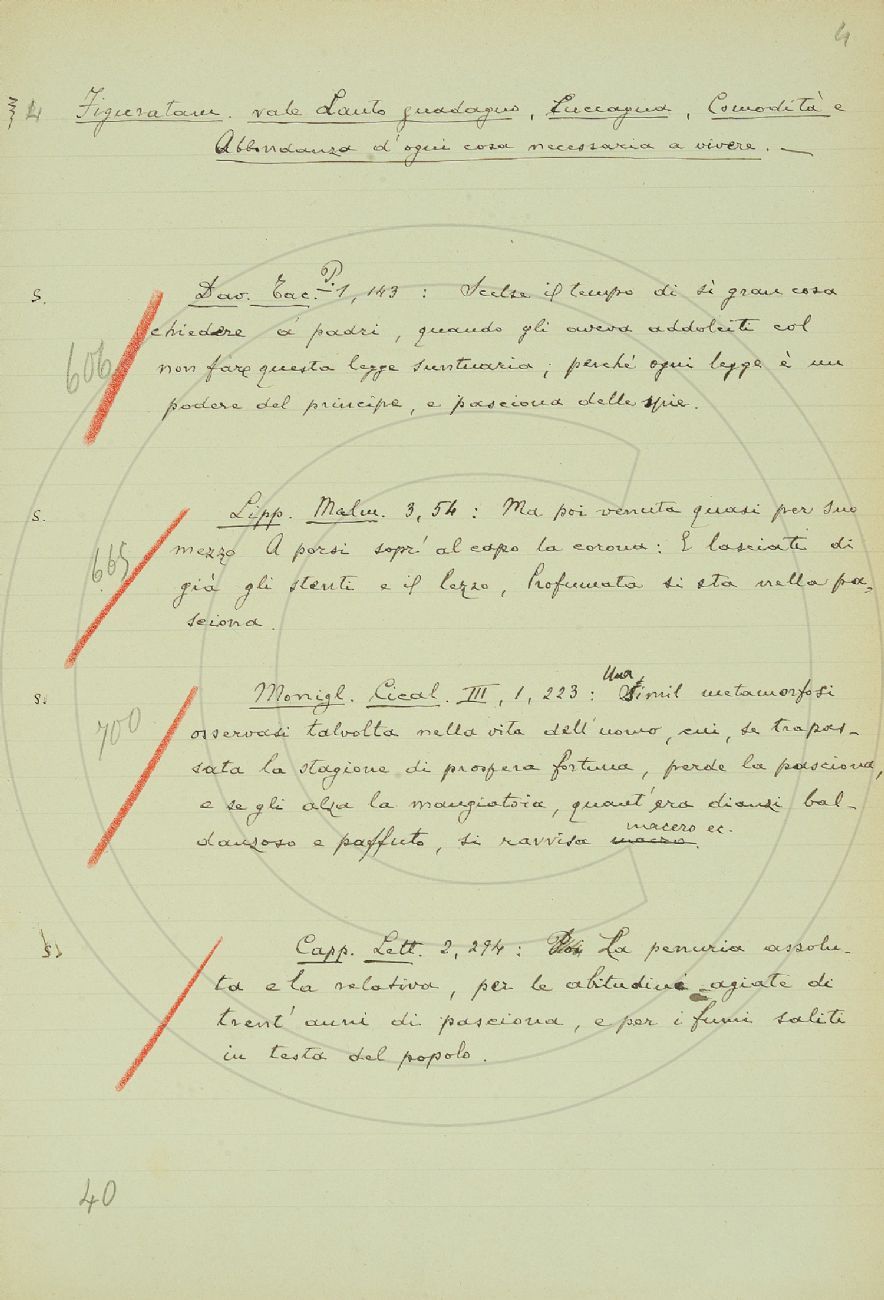 4
§ 4 Figuratam. vale Lauto guadagno, Cuccagna, Comodità e
Abbondanza d'ogni cosa necessaria a vivere. —
S. Dav. Tac. P. 1, 143 : Scelse il tempo di sì gran cosa
606 chiedere a' padri, quando gli aveva addolciti col
non fare questa legge suntuaria; perchè ogni legge è un
podere del principe, e pasciona delle spie.
S. Lipp. Malm. 3, 54 : Ma poi venuta quasi per suo
665 mezzo A porsi sopr' al capo la corona: E lasciati di
già gli stenti e il lezzo, Profumata si sta nella pa-
sciona.
S. Monigl. Cical. III, 1, 223 : Una simil metamorfosi
700 osservasi talvolta nella vita dell'uomo, cui, se trapas-
sata la stagione di prospera fortuna, perde la pasciona,
e se gli alza la mangiatoia, quant'era dianzi bal-
danzoso e paffuto, si ravvisa macro macero ec.
S. Capp. Lett. 2, 294 : La penuria assolu-
ta e la relativa, per le abitudini agiate di
trent' anni di pasciona, e per i fumi saliti
in testa del popolo.
40